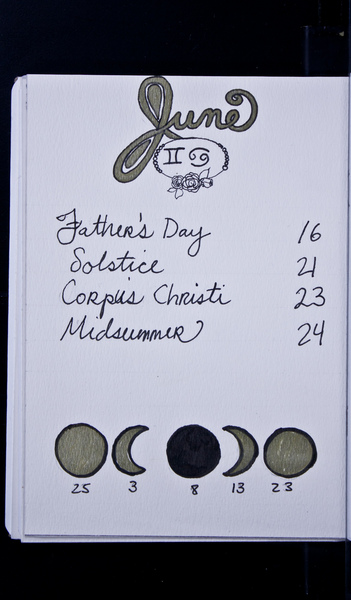 June
♊ ♋
Father's Day 16
Solstice 21
Corpus Christi 23
Midsummer 24
25 3 8 13 23